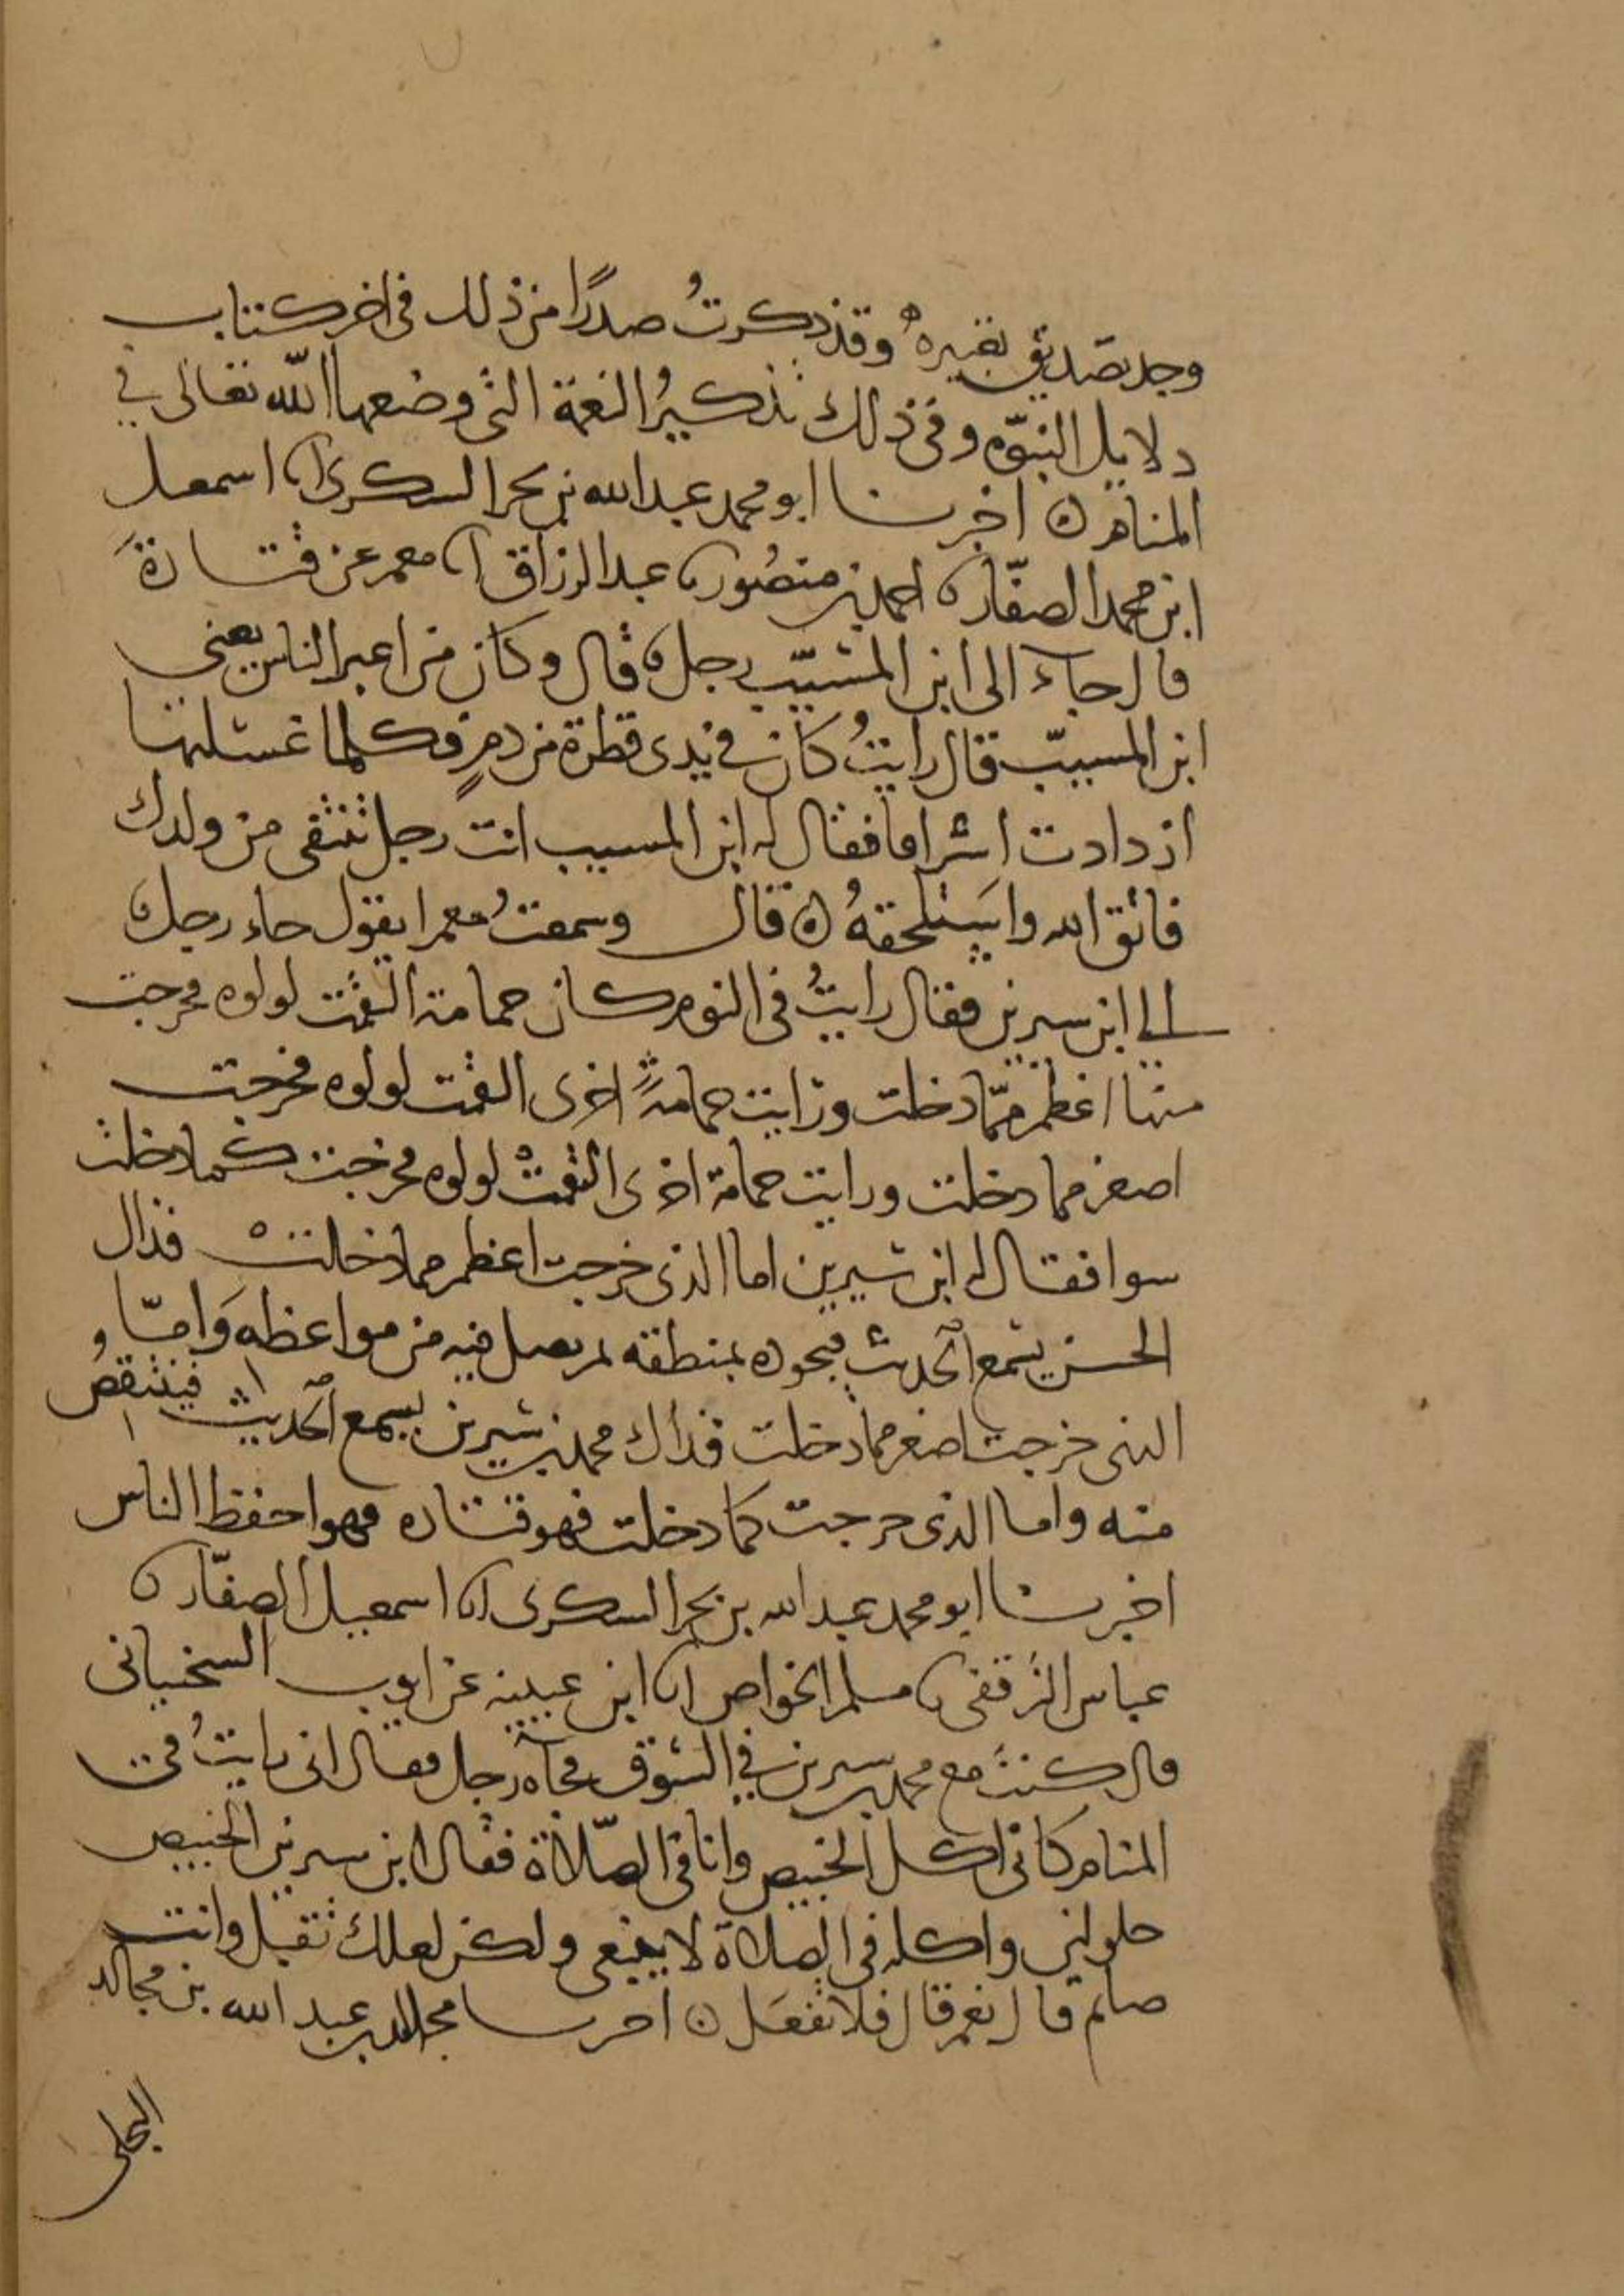 وجد تصديق تعبيره وقد ذكرتُ صدرًا من ذلك في اخر كتاب
دلايل النبوّه وفي ذلك تذكيرُ النعمة التي وضعها الله تعالى في
المنام ه اخبرنا ابو محمد عبد الله بن يحيى السكري انا اسمعيل
ابن محمد الصفّار نا احمد بن منصور نا عبد الرزاق انا معمر عن قتادةَ
قال جاء الى ابن المسيّب رجل قال وكان من اعبر الناس يعني
ابن المسيّب قال رايتُ كان في يدي قطرة من دمٍ فكلما غسلتها
ازدادت اشراقا فقال له ابن المسيب انت رجل تنتفي من ولدك
فاتق الله واستلحقهُ ه قال وسمعتُ معمرا يقول جاء رجل
الى ابن سيرين فقال رايتُ في النوم كان حمامة التقمت لولوه فخرجت
منها اعظم ممّا دخلت ورايت حمامةً اخرى التقمت لولوه فخرجت
اصغر مما دخلت ورايت حمامة اخرى التقمتْ لولوه فخرجت كما دخلت
سوا فقال له ابن سيرين اما الذي خرجت اعظم مما دخلت فذاك
الحسن يسمع الحديث فيجوده بمنطقه ثم يصل فيه من مواعظه وَامّا
التي خرجت اصغر مما دخلت فذاك محمد بن سيرين يسمع الحديث فينتقصُ
منه واما الذي خرجت كما دخلت فهو قتاده فهو احفظ الناس
اخبرنا ابو محمد عبد الله بن يحيى السكري انا اسمعيل الصفّار نا
عباس الترقفي نا مسلم الخواص انا ابن عيينه عن ايوب السختياني
قال كنتُ مع محمد بن سيرين في السُوق فجآه رجل فقال اني رايتُ في
المنام كاني اكل الخبيص وانا في الصّلاة فقال ابن سيرين الخبيص
حلو لين واكله في الصلاة لا ينبغي ولكن لعلك تقبل وانت
صايم قال نعم قال فلا تفعَل ه اخبرنا مجالد بن عبد الله بن مجالد
البجلي